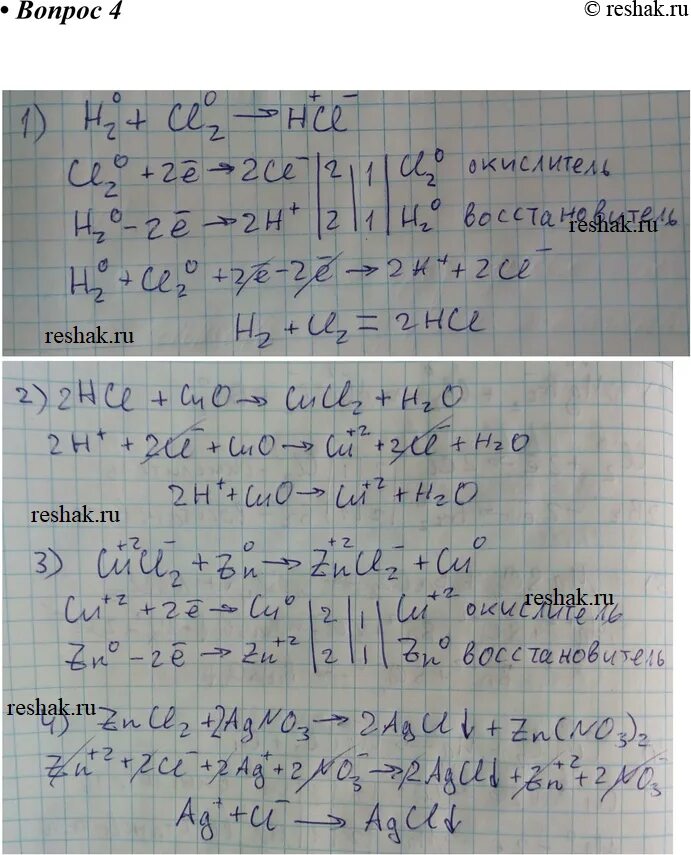 • Вопрос 4
© reshak.ru
1) H₂⁰ + Cl₂⁰ → H⁺Cl⁻
Cl₂⁰ + 2ē → 2Cl⁻ | 2 | 1 | Cl₂⁰ окислитель
H₂⁰ - 2ē → 2H⁺ | 2 | 1 | H₂⁰ восстановитель
reshak.ru
H₂⁰ + Cl₂⁰ + 2ē - 2ē → 2H⁺ + 2Cl⁻
reshak.ru
H₂ + Cl₂ = 2HCl
2) 2HCl + CuO → CuCl₂ + H₂O
2H⁺ + 2Cl⁻ + CuO → Cu⁺² + 2Cl⁻ + H₂O
2H⁺ + CuO → Cu⁺² + H₂O
reshak.ru
3) Cu⁺²Cl₂⁻ + Zn⁰ → Zn⁺²Cl₂⁻ + Cu⁰
reshak.ru
Cu⁺² + 2ē → Cu⁰ | 2 | 1 | Cu⁺² окислитель
Zn⁰ - 2ē → Zn⁺² | 2 | 1 | Zn⁰ восстановитель
reshak.ru
4) ZnCl₂ + 2AgNO₃ → 2AgCl↓ + Zn(NO₃)₂
Zn⁺² + 2Cl⁻ + 2Ag⁺ + 2NO₃⁻ → 2AgCl↓ + Zn⁺² + 2NO₃⁻
Ag⁺ + Cl⁻ → AgCl↓